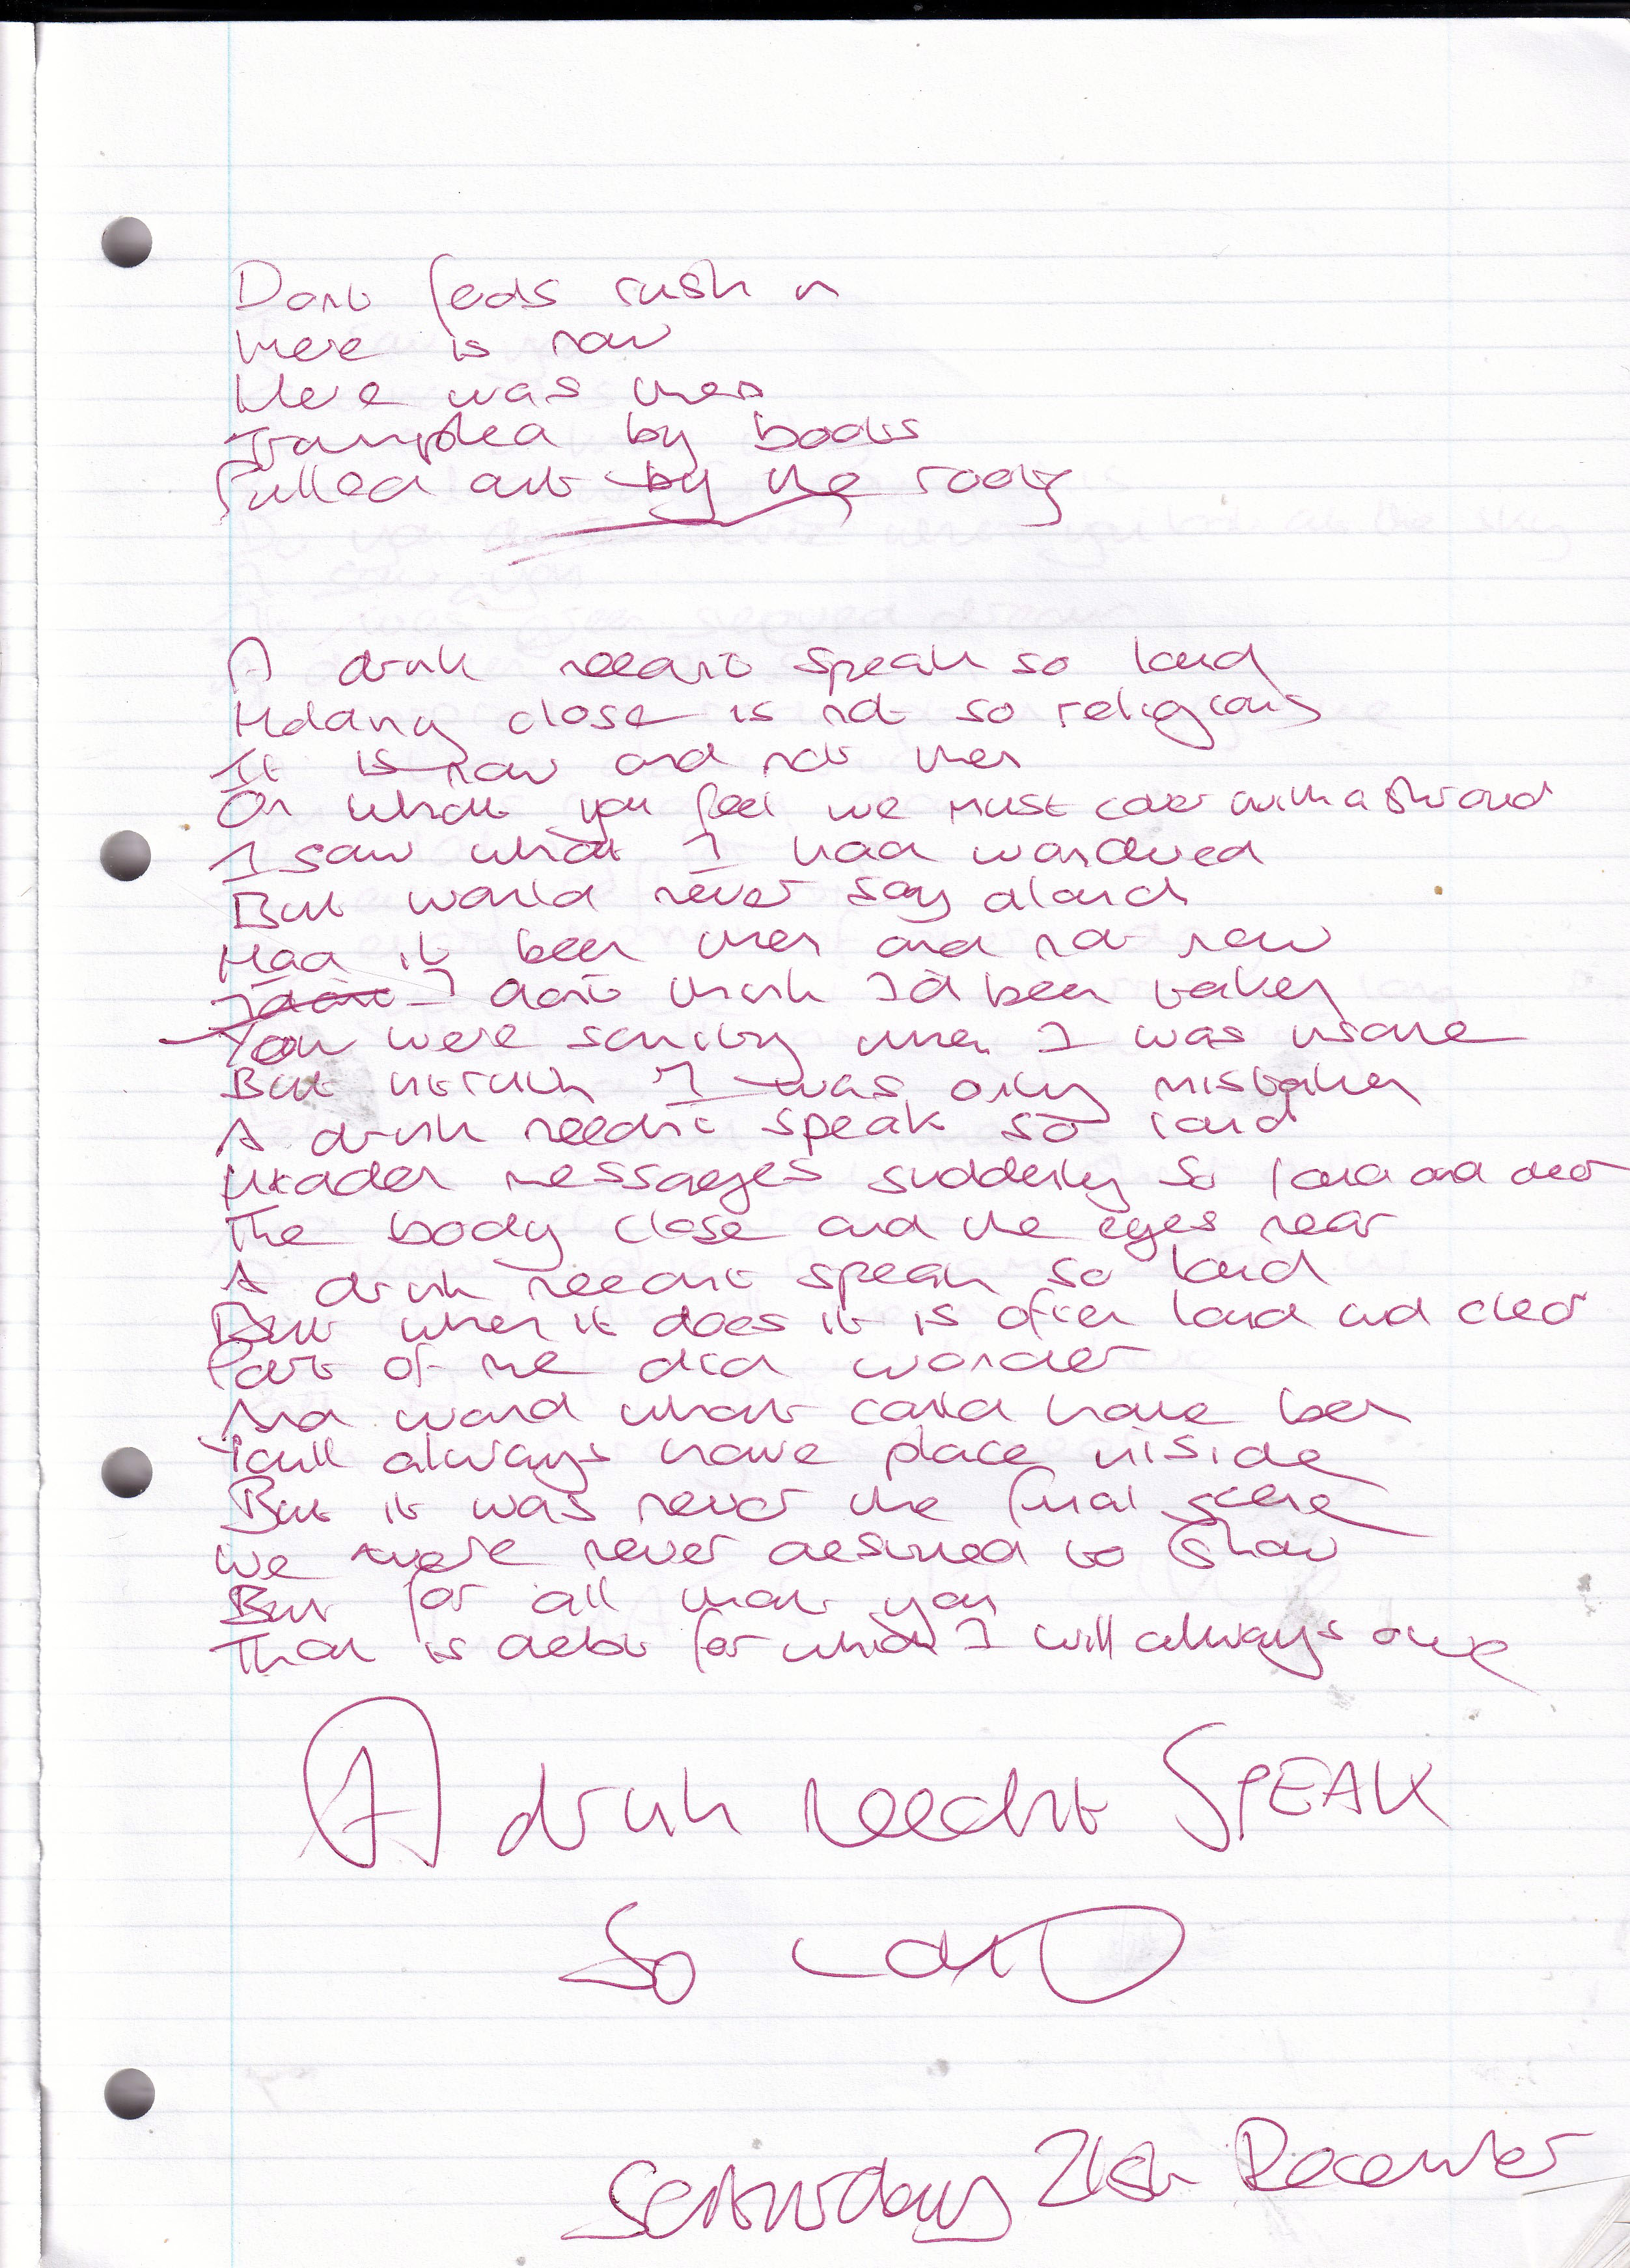 Dont feds rush in
Here is now
Here was then
Trampled by boots
Pulled out by the roots
A drink needn't speak so loud
Holding close is not so religious
It is now and not then
On what you feel we must cover with a shroud
I saw what I had wondered
But would never say aloud
Had it been then and not now
I dont think I'd been taken
You were sanity when I was insane
But in truth I was only mistaken
A drink needn't speak so loud
Hidden messages suddenly so loud and clear
The body close and the eyes near
A drink needn't speak so loud
But when it does it is often loud and clear
Part of me did wonder
And what could have been
You'll always have place inside
But it was never the final scene
We were never destined to show
But for all that you
That is debt for which I will always owe
A drink needn't SPEAK
So LOUD
Saturday 21st December